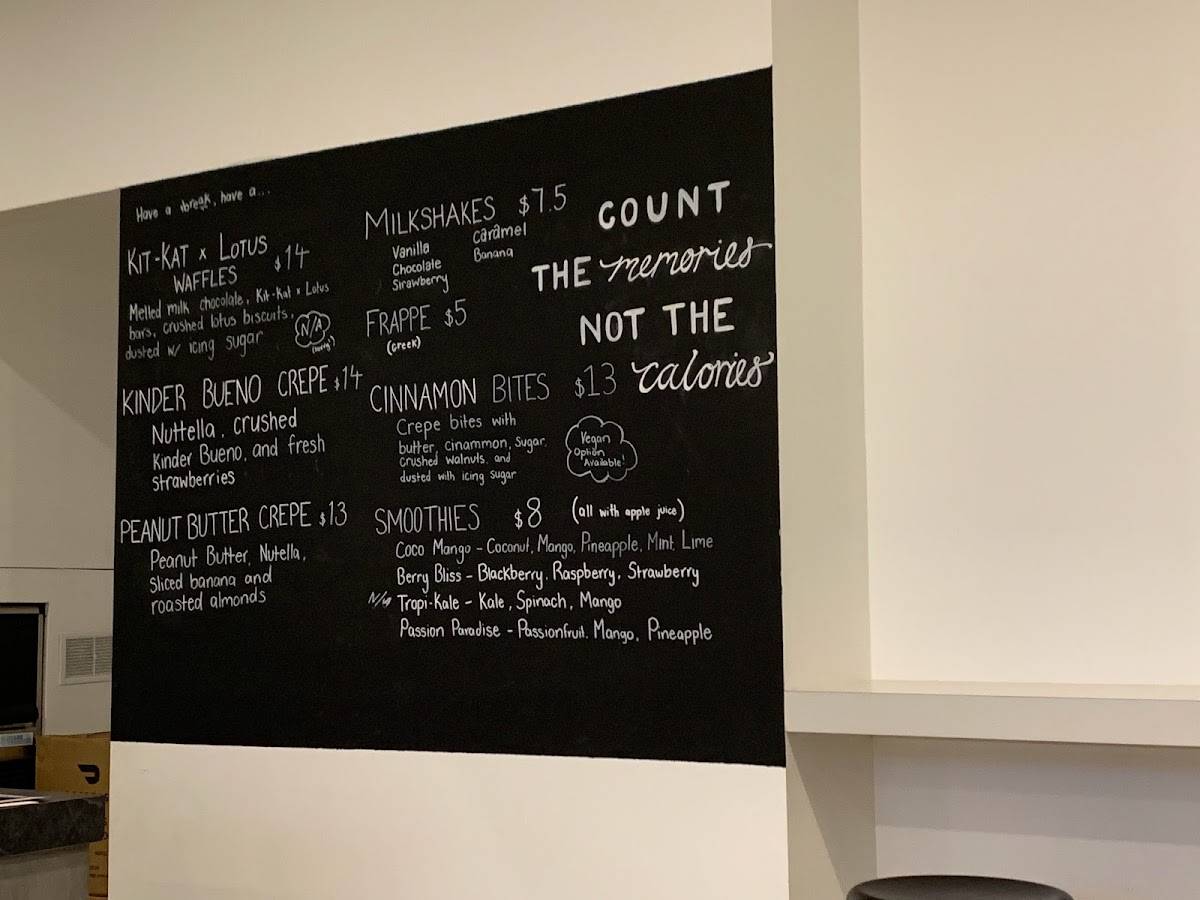 Have a break, have a...
KIT-KAT x LOTUS
WAFFLES $14
Melted milk chocolate, Kit-Kat x Lotus
bars, crushed lotus biscuits,
dusted w/ icing sugar
N/A
(sorry!)
KINDER BUENO CREPE $14
Nuttella, crushed
Kinder Bueno, and fresh
strawberries
PEANUT BUTTER CREPE $13
Peanut Butter, Nutella,
Sliced banana and
roasted almonds
MILKSHAKES $7.5
Vanilla
Chocolate
Strawberry
Caramel
Banana
FRAPPE $5
(Greek)
CINNAMON BITES $13
Crepe bites with
butter, cinammon, sugar,
crushed walnuts, and
dusted with icing sugar
Vegan
Option
Available!
SMOOTHIES $8 (all with apple juice)
Coco Mango - Coconut, Mango, Pineapple, Mint, Lime
Berry Bliss - Blackberry, Raspberry, Strawberry
N/A Tropi-Kale - Kale, Spinach, Mango
Passion Paradise - Passionfruit, Mango, Pineapple
COUNT
THE memories
NOT THE
calories